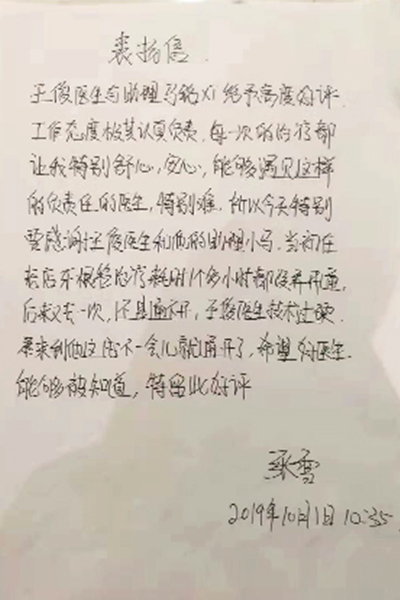 表扬信
医生与助理 给予高度好评.
工作态度极其认真负责.每一次的治疗都
让我特别舒心,安心,能够遇见这样
的负责任的医生,特别难.所以今天特别
要感谢王俊医生和他的助理小马.当初在
牙根管治疗耗时1个多小时都没弄开,
后来又去一次,还是通不开,王俊医生技术过硬.
来到他这儿不一会儿就通开了,希望好医生
能够被知道,特留此好评
张雪
2019年10月1日 10:35